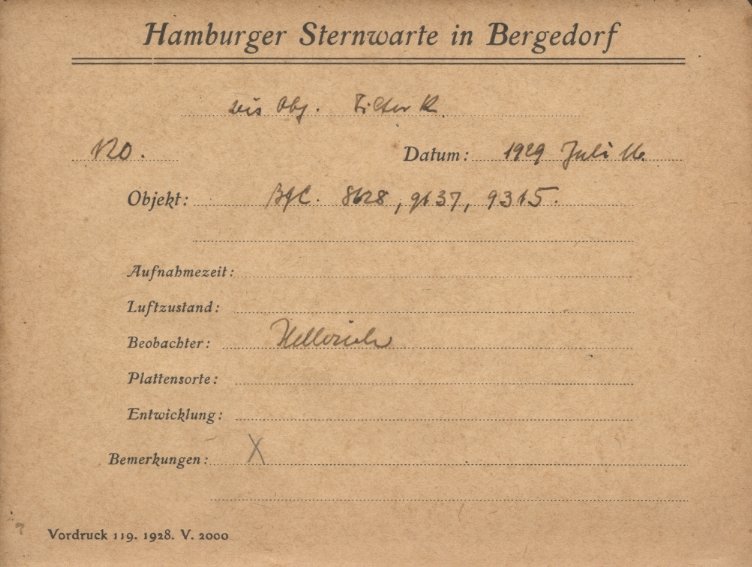 Hamburger Sternwarte in Bergedorf
vis Obj. Filter R.
120. Datum: 1929 Juli 16
Objekt: BGC. 8628, 9137, 9315.
Aufnahmezeit:
Luftzustand:
Beobachter: Hellerich
Plattensorte:
Entwicklung:
Bemerkungen: X
Vordruck 119. 1928. V. 2000